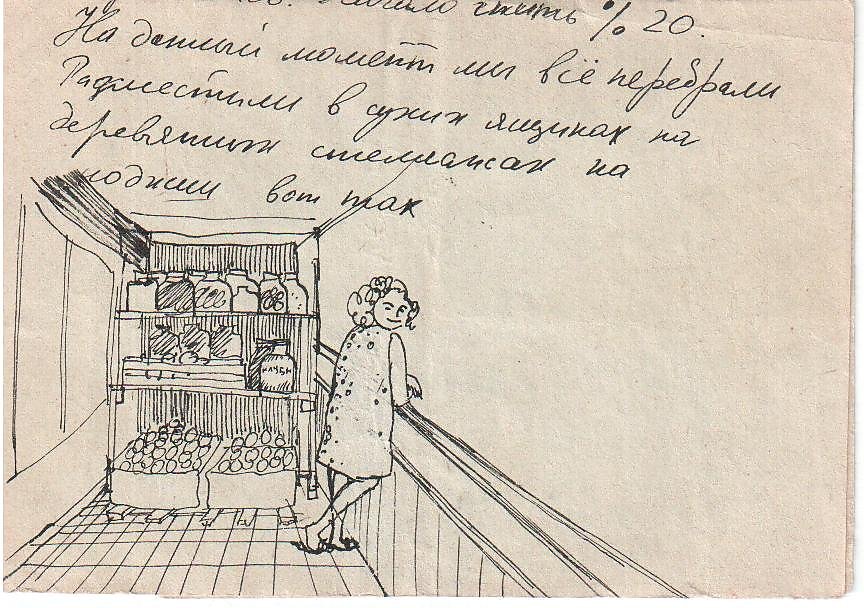 гнить % 20.
На данный момент мы всё перебрали
Разместили в сухих ящиках на
деревянных стеллажах на
лоджии вот так
КЛУБН